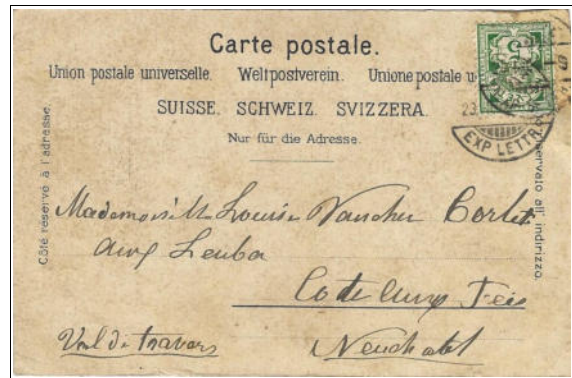 Carte postale.
Union postale universelle. Weltpostverein. Unione postale u
SUISSE. SCHWEIZ. SVIZZERA.
Nur für die Adresse.
Côté réservé à l'adresse.
servato all' indirizzo.
5
23
EXP LETTR
Mademoiselle Louise Vaucher
Leuba
Neuchatel
Val de travers